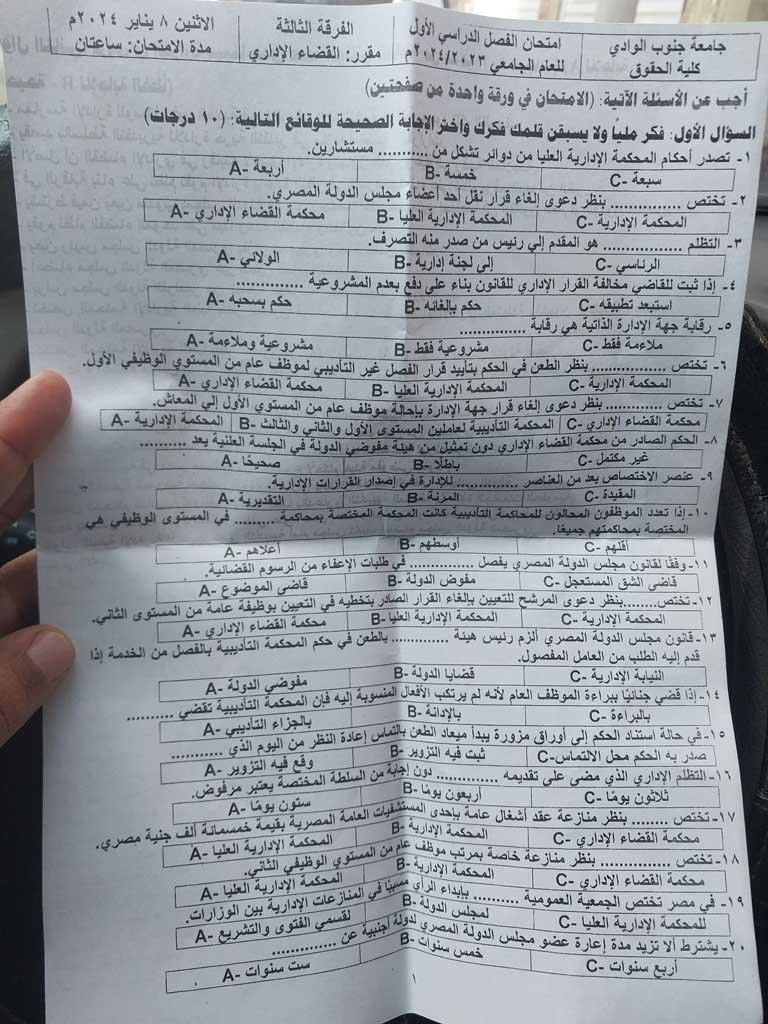 جامعة جنوب الوادي
كلية الحقوق
امتحان الفصل الدراسي الأول
للعام الجامعي ٢٠٢٤/٢٠٢٣م
الفرقة الثالثة
مقرر: القضاء الإداري
الاثنين ٨ يناير ٢٠٢٤م
مدة الامتحان: ساعتان
أجب عن الأسئلة الآتية: (الامتحان في ورقة واحدة من صفحتين)
السؤال الأول: فكر ملياً ولا يسبقن قلمك فكرك واختر الإجابة الصحيحة للوقائع التالية: (١٠ درجات)
١- تصدر أحكام المحكمة الإدارية العليا من دوائر تشكل من .......... مستشارين.
A- أربعة B- خمسة C- سبعة
٢- تختص .............. بنظر دعوى إلغاء قرار نقل أحد أعضاء مجلس الدولة المصري.
A- محكمة القضاء الإداري B- المحكمة الإدارية العليا C- المحكمة الإدارية
٣- التظلم ............... هو المقدم إلي رئيس من صدر منه التصرف.
A- الولائي B- إلى لجنة إدارية C- الرئاسي
٤- إذا ثبت للقاضي مخالفة القرار الإداري للقانون بناء على دفع بعدم المشروعية .............
A- حكم بسحبه B- حكم بإلغائه C- استبعد تطبيقه
٥- رقابة جهة الإدارة الذاتية هي رقابة .............
A- مشروعية وملاءمة B- مشروعية فقط C- ملاءمة فقط
٦- تختص .............. بنظر الطعن في الحكم بتأييد قرار الفصل غير التأديبي لموظف عام من المستوي الوظيفي الأول.
A- محكمة القضاء الإداري B- المحكمة الإدارية العليا C- المحكمة الإدارية
٧- تختص ............. بنظر دعوى إلغاء قرار جهة الإدارة بإحالة موظف عام من المستوي الأول إلي المعاش.
A- المحكمة الإدارية B- المحكمة التأديبية لعاملين المستوى الأول والثاني والثالث C- محكمة القضاء الإداري
٨- الحكم الصادر من محكمة القضاء الإداري دون تمثيل من هيئة مفوضي الدولة في الجلسة العلنية يعد ..........
A- صحيحًا B- باطلًا C- غير مكتمل
٩- عنصر الاختصاص يعد من العناصر ............. للإدارة في إصدار القرارات الإدارية.
A- التقديرية B- المرنة C- المقيدة
١٠- إذا تعدد الموظفون المحالون للمحاكمة التأديبية كانت المحكمة المختصة بمحاكمة ......... في المستوى الوظيفي هي
المختصة بمحاكمتهم جميعًا.
A- أعلاهم B- أوسطهم C- أقلهم
١١- وفقًا لقانون مجلس الدولة المصري يفصل .............. في طلبات الإعفاء من الرسوم القضائية.
A- قاضي الموضوع B- مفوض الدولة C- قاضي الشق المستعجل
١٢- تختص........بنظر دعوى المرشح للتعيين بإلغاء القرار الصادر بتخطيه في التعيين بوظيفة عامة من المستوى الثاني.
A- محكمة القضاء الإداري B- المحكمة الإدارية العليا C- المحكمة الإدارية
١٣- قانون مجلس الدولة المصري ألزم رئيس هيئة ............. بالطعن في حكم المحكمة التأديبية بالفصل من الخدمة إذا
قدم إليه الطلب من العامل المفصول.
A- مفوضي الدولة B- قضايا الدولة C- النيابة الإدارية
١٤- إذا قضي جنائيًا ببراءة الموظف العام لأنه لم يرتكب الأفعال المنسوبة إليه فإن المحكمة التأديبية تقضي ..........
A- بالجزاء التأديبي B- بالإدانة C- بالبراءة
١٥- في حالة استناد الحكم إلي أوراق مزورة يبدأ ميعاد الطعن بالتماس إعادة النظر من اليوم الذي ...........
A- وقع فيه التزوير B- ثبت فيه التزوير C- صدر به الحكم محل الالتماس
١٦- التظلم الإداري الذي مضى على تقديمه ............. دون إجابة من السلطة المختصة يعتبر مرفوض.
A- ستون يومًا B- أربعون يومًا C- ثلاثون يومًا
١٧- تختص ........ بنظر منازعة عقد أشغال عامة بإحدى المستشفيات العامة المصرية بقيمة خمسمائة ألف جنية مصري.
A- المحكمة الإدارية العليا B- المحكمة الإدارية C- محكمة القضاء الإداري
١٨- تختص ............... بنظر منازعة خاصة بمرتب موظف عام من المستوي الوظيفي الثاني.
A- المحكمة الإدارية العليا B- المحكمة الإدارية C- محكمة القضاء الإداري
١٩- في مصر تختص الجمعية العمومية .......... بإبداء الرأي مسببًا في المنازعات الإدارية بين الوزارات.
A- لقسمي الفتوى والتشريع B- لمجلس الدولة C- للمحكمة الإدارية العليا
٢٠- يشترط ألا تزيد مدة إعارة عضو مجلس الدولة المصري لدولة أجنبية عن ..............
A- ست سنوات B- خمس سنوات C- أربع سنوات
١